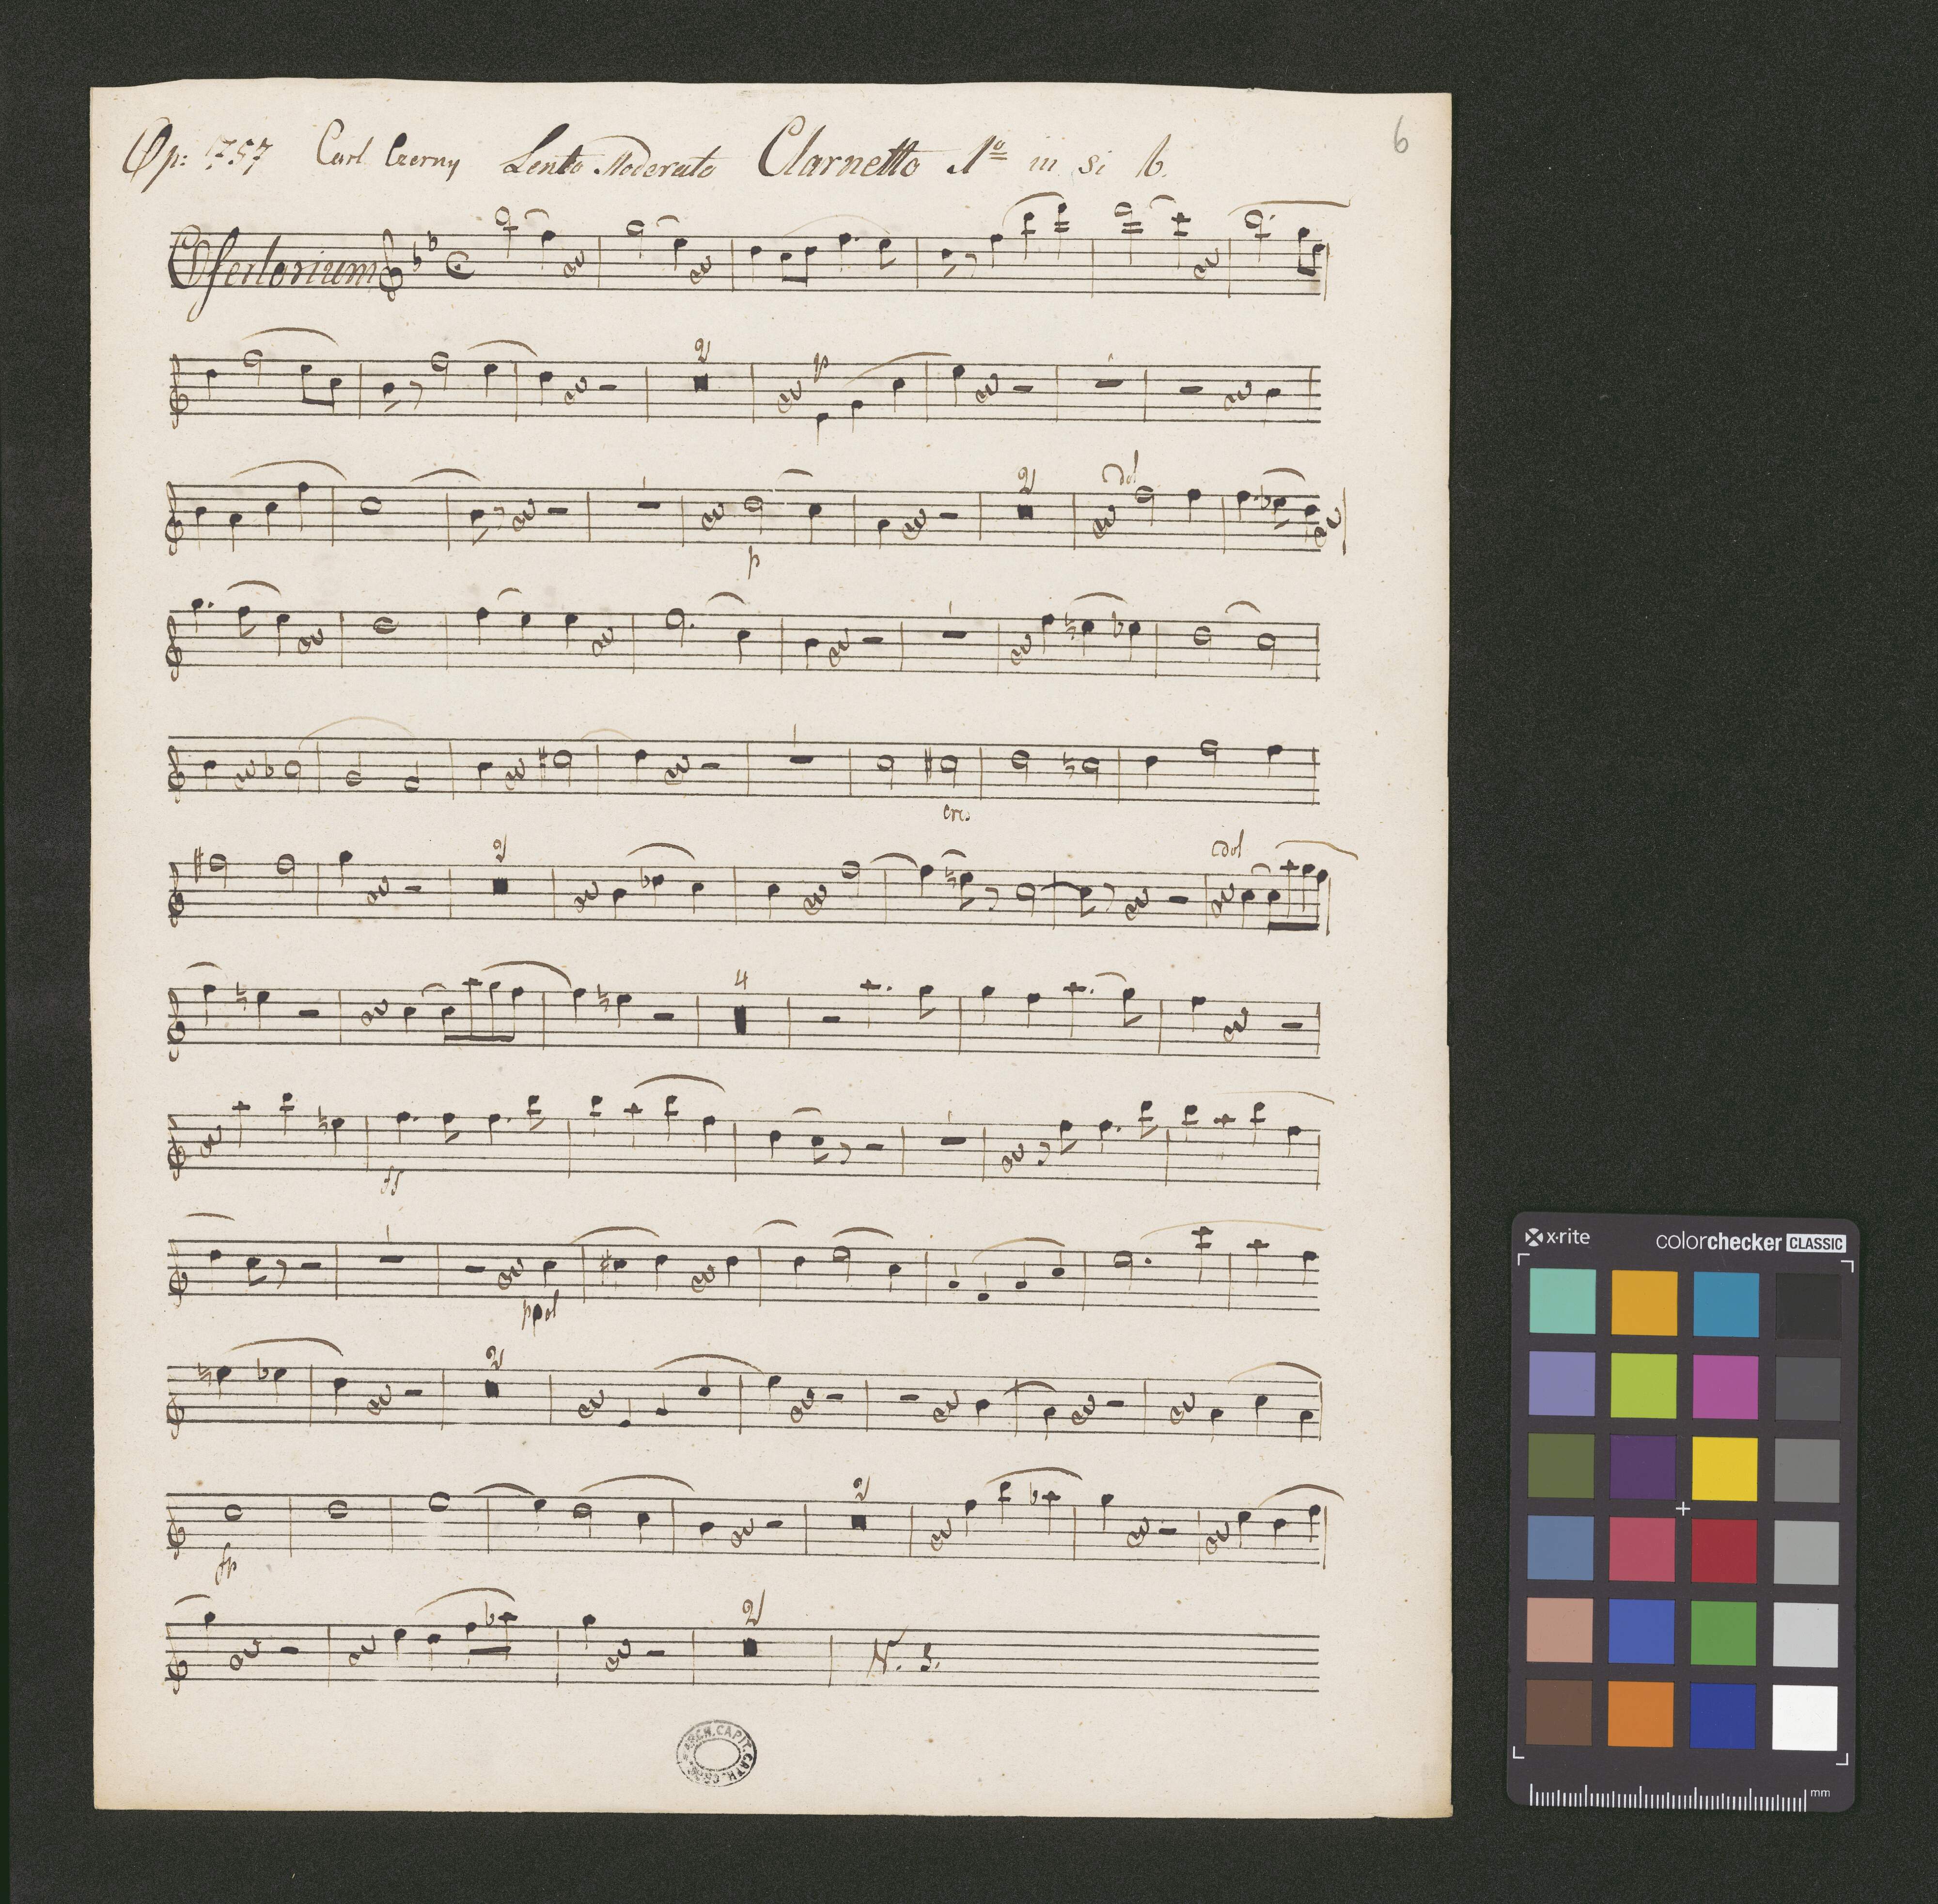 6
Op: 757 Carl Czerny Lento Moderato Clarnetto 1º in si b.
Ofertorium
2 p
2 dol
p
cres
2 dol
4
ff
2
fp 2
2
N. 3.
ARCH. CAPIT. CATH.
x-rite colorchecker CLASSIC
mm